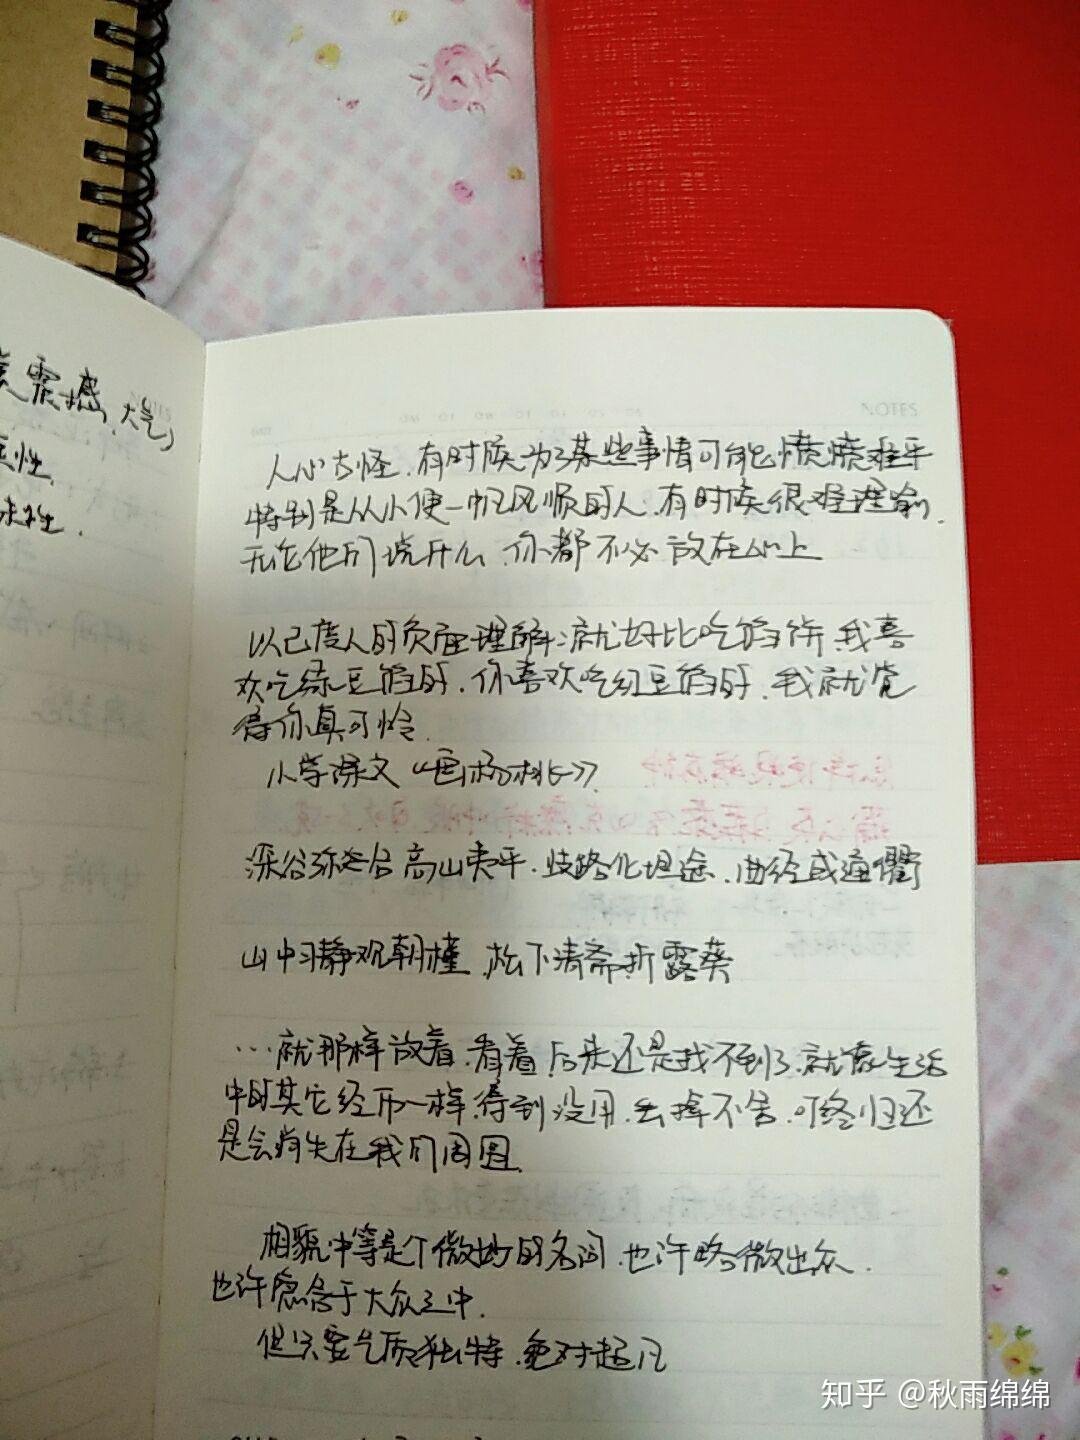 震撼、大气
NOTES
人心古怪，有时候为了某些事情可能愤愤难平
特别是从小便一帆风顺的人，有时候很难理喻，
无论他们说什么，你都不必放在心上
以己度人的负面理解：就好比吃馅饼，我喜
欢吃绿豆馅的，你喜欢吃红豆馅的，我就觉
得你真可怜，
小学课文《画杨桃》
深谷弥合高山夷平，歧路化坦途，曲径成通衢
山中习静观朝槿，松下清斋折露葵
…就那样放着，看着，后来还是找不到了，就像生活
中的其它经历一样，得到没用，丢掉不舍，可终归还
是会消失在我们周围，
相貌中等是个微妙的名词，也许略微出众，
也许隐含于大众之中，
但只要气质独特，绝对超凡
知乎 @秋雨绵绵